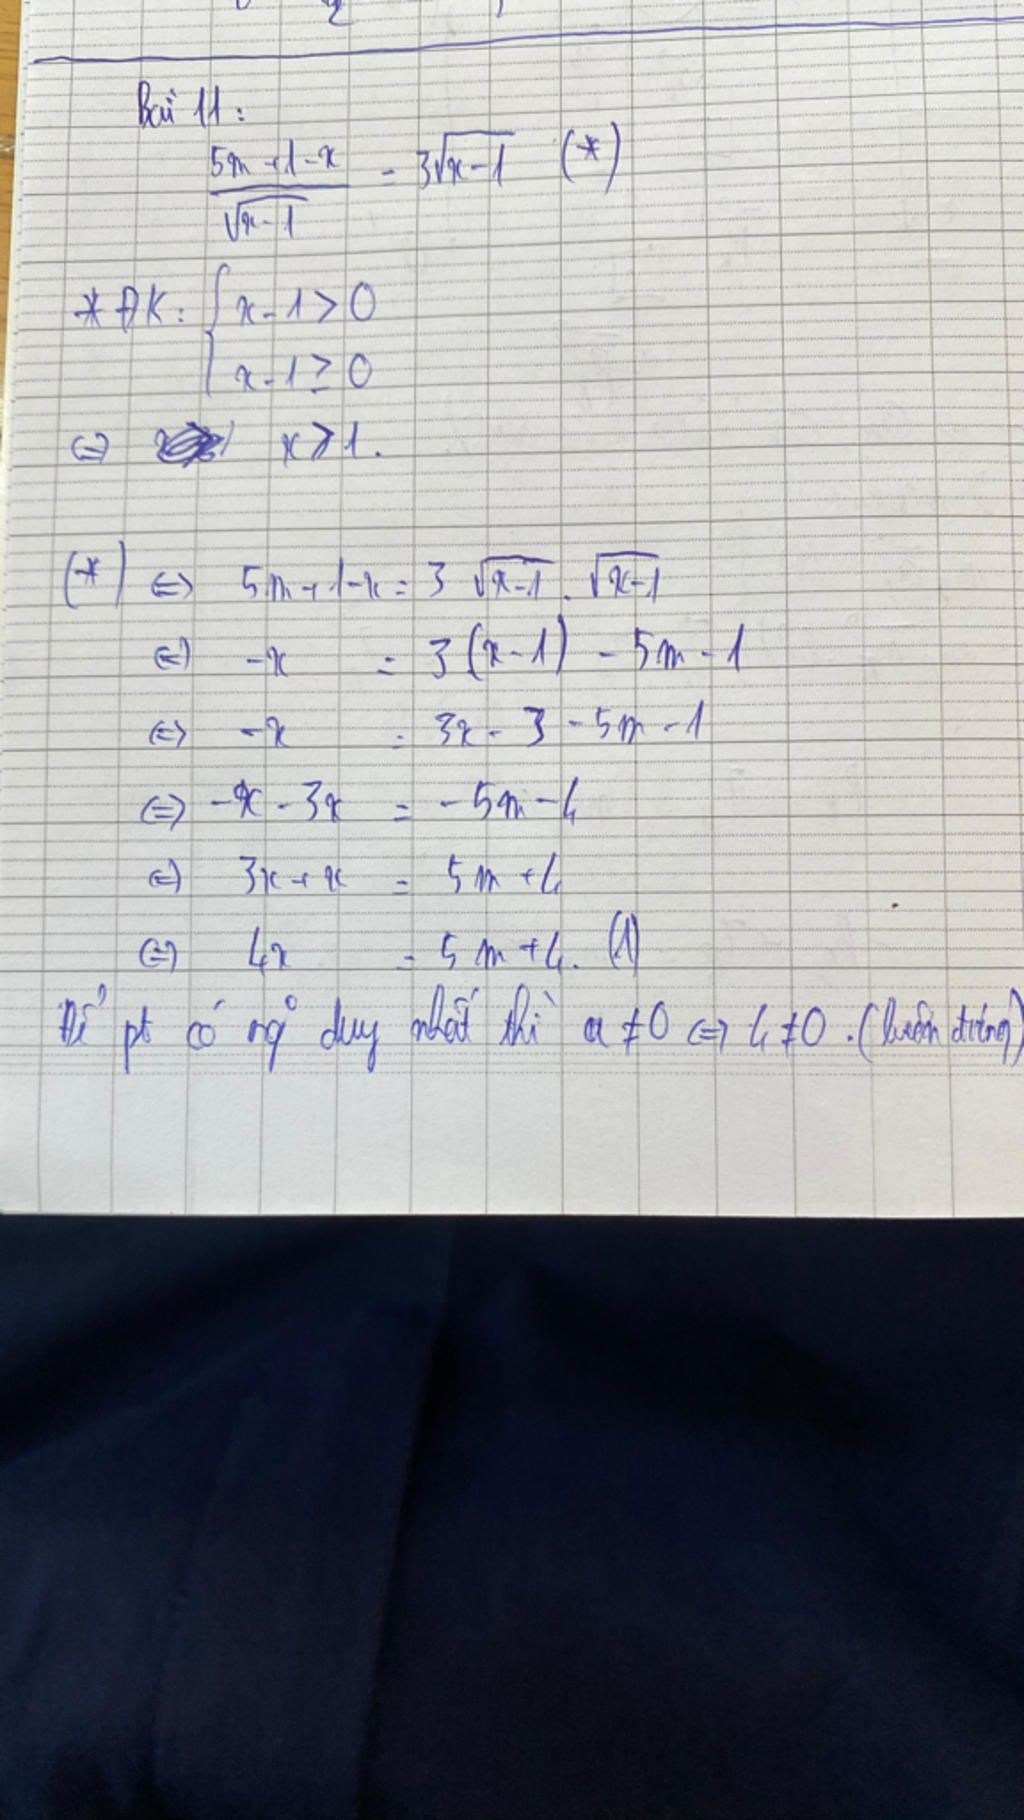 Bài 11:
5m+1-x / √x-1 = 3√x-1 (*)
* ĐK: { x-1>0
x-1≥0
⇔ x>1.
(*) ⇔ 5m+1-x = 3 √x-1 . √x-1
⇔ -x = 3(x-1) - 5m - 1
⇔ -x = 3x - 3 - 5m - 1
⇔ -x - 3x = -5m - 4
⇔ 3x + x = 5m + 4
⇔ 4x = 5m + 4. (1)
Để pt có ng° duy nhất thì a ≠ 0 ⇔ 4 ≠ 0. (luôn đúng)